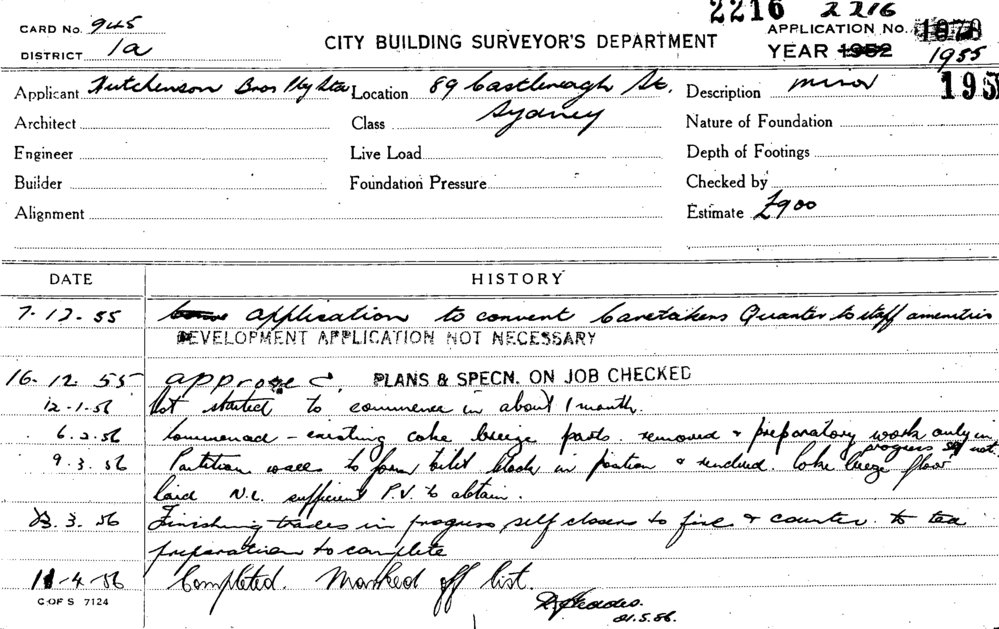 2216 2216
CARD No. 945 APPLICATION No. 1070
DISTRICT 1a CITY BUILDING SURVEYOR'S DEPARTMENT YEAR 1952 1955
Applicant Hutchinson Bros Pty Ltd Location 89 Castlereagh St. Description minor 195
Architect Class Sydney Nature of Foundation
Engineer Live Load Depth of Footings
Builder Foundation Pressure Checked by
Alignment Estimate £900
DATE HISTORY
7.12.55 application to convert Caretakers Quarter to staff amenities
DEVELOPMENT APPLICATION NOT NECESSARY
16.12 55 approved. PLANS & SPECN. ON JOB CHECKED
12-1.56 Not started to commence in about 1 month.
6.2.56 Commenced - existing coke breeze parts. removed & preparatory work only in progress
9.3.56 Partition walls to form toilet block in position & rendered. Coke breeze floor not
laid N.C. sufficient P.V. to obtain.
3.56 Finishing trades in progress self closers to fire & counter to tea
preparation to complete
11-4-56 Completed. Marked off list.
C OF S 7124
21.5.56.